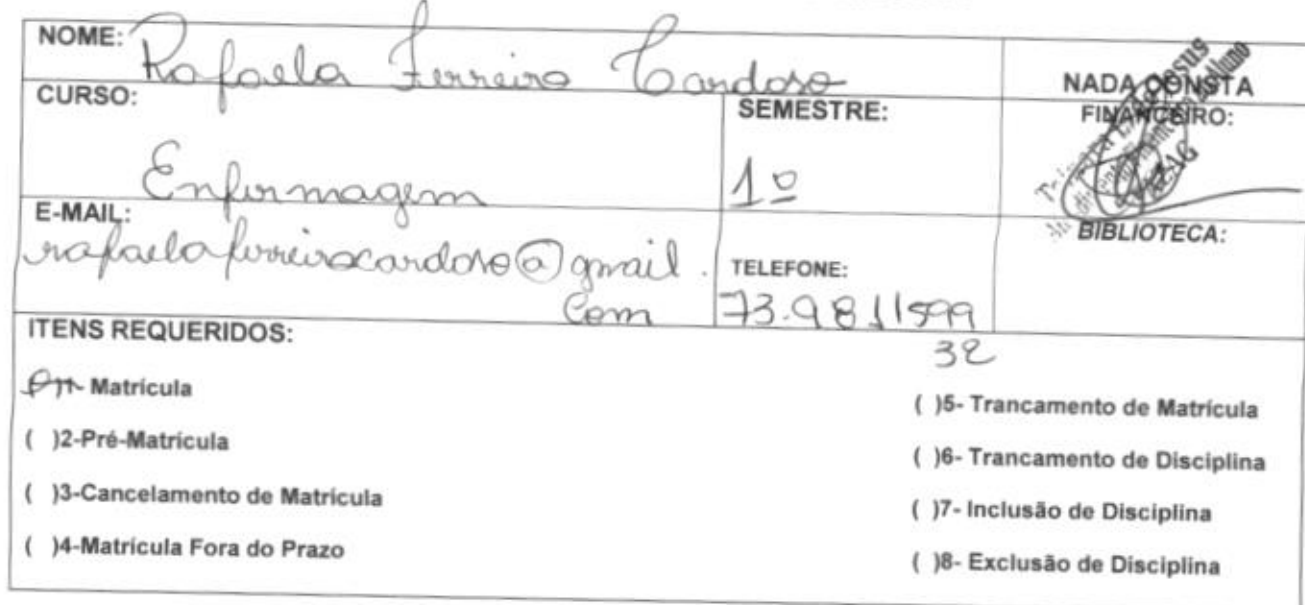 NOME: Rafaela Ferreira Cardoso
NADA CONSTA
FINANCEIRO:
CURSO: Enfermagem
SEMESTRE: 1º
E-MAIL: rafaelaferreiracardoso@gmail.
com
TELEFONE: 73.9811599
32
BIBLIOTECA:
ITENS REQUERIDOS:
( )1- Matrícula
( )2-Pré-Matrícula
( )3-Cancelamento de Matrícula
( )4-Matrícula Fora do Prazo
( )5- Trancamento de Matrícula
( )6- Trancamento de Disciplina
( )7- Inclusão de Disciplina
( )8- Exclusão de Disciplina